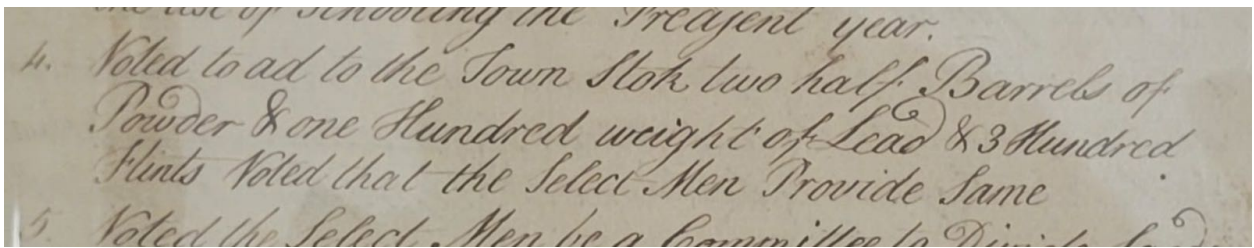 the use of Schooling the Preasent year.
4. Voted to ad to the Town Stok two half Barrels of
Powder & one Hundred weight of Lead & 3 Hundred
Flints Voted that the Select Men Provide Same
5. Voted the Select Men be a Committee to Divide